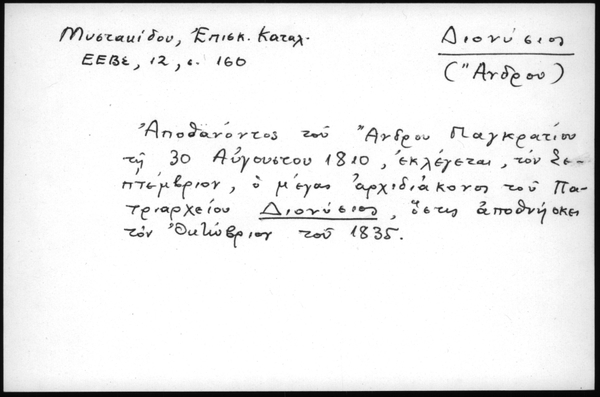 Μυστακίδου, Ἐπισκ. Καταλ.
ΕΕΒΣ, 12, σ. 160
Διονύσιος
(Ἄνδρου)
Ἀποθανόντος τοῦ Ἄνδρου Παγκρατίου
τῇ 30 Αὐγούστου 1810, ἐκλέγεται, τόν Σε-
πτέμβριον, ὁ μέγας ἀρχιδιάκονος τοῦ Πα-
τριαρχείου Διονύσιος, ὅστις ἀποθνήσκει
τόν Ὀκτώβριον τοῦ 1835.